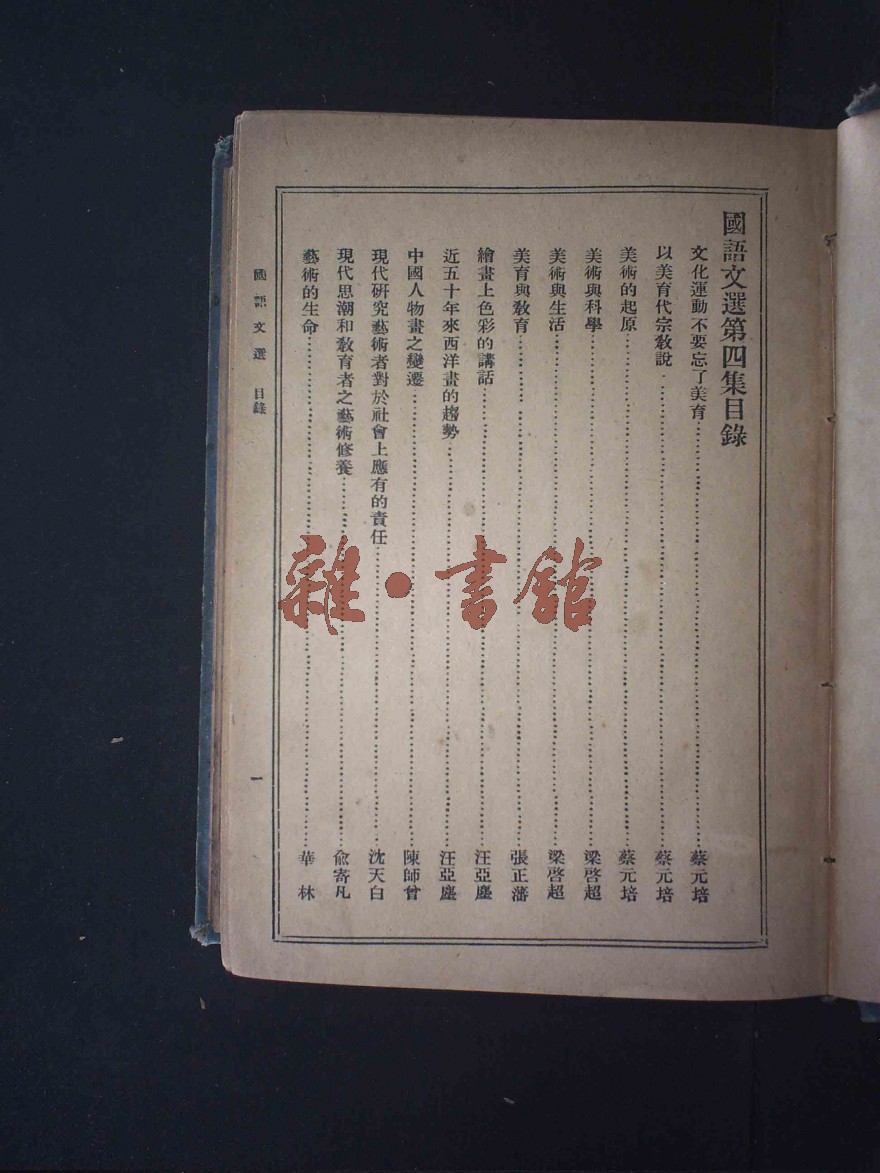 國語文選第四集目錄
文化運動不要忘了美育……蔡元培
以美育代宗教說……蔡元培
美術的起原……蔡元培
美術與科學……梁啓超
美術與生活……梁啓超
美育與教育……張正藩
繪畫上色彩的講話……汪亞塵
近五十年來西洋畫的趨勢……汪亞塵
中國人物畫之變遷……陳師曾
現代研究藝術者對於社會上應有的責任……沈天白
現代思潮和教育者之藝術修養……俞寄凡
藝術的生命……華林
國語文選 目錄
一
雜·書館